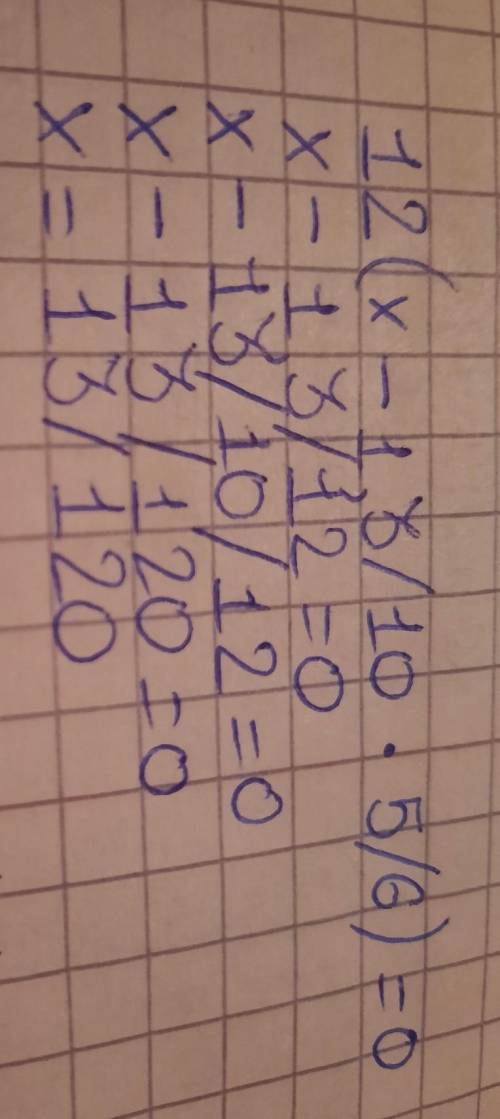 12(x - 13/10 · 5/6) = 0
x - 13/12 = 0
x - 13/10/12 = 0
x - 13/120 = 0
x = 13/120